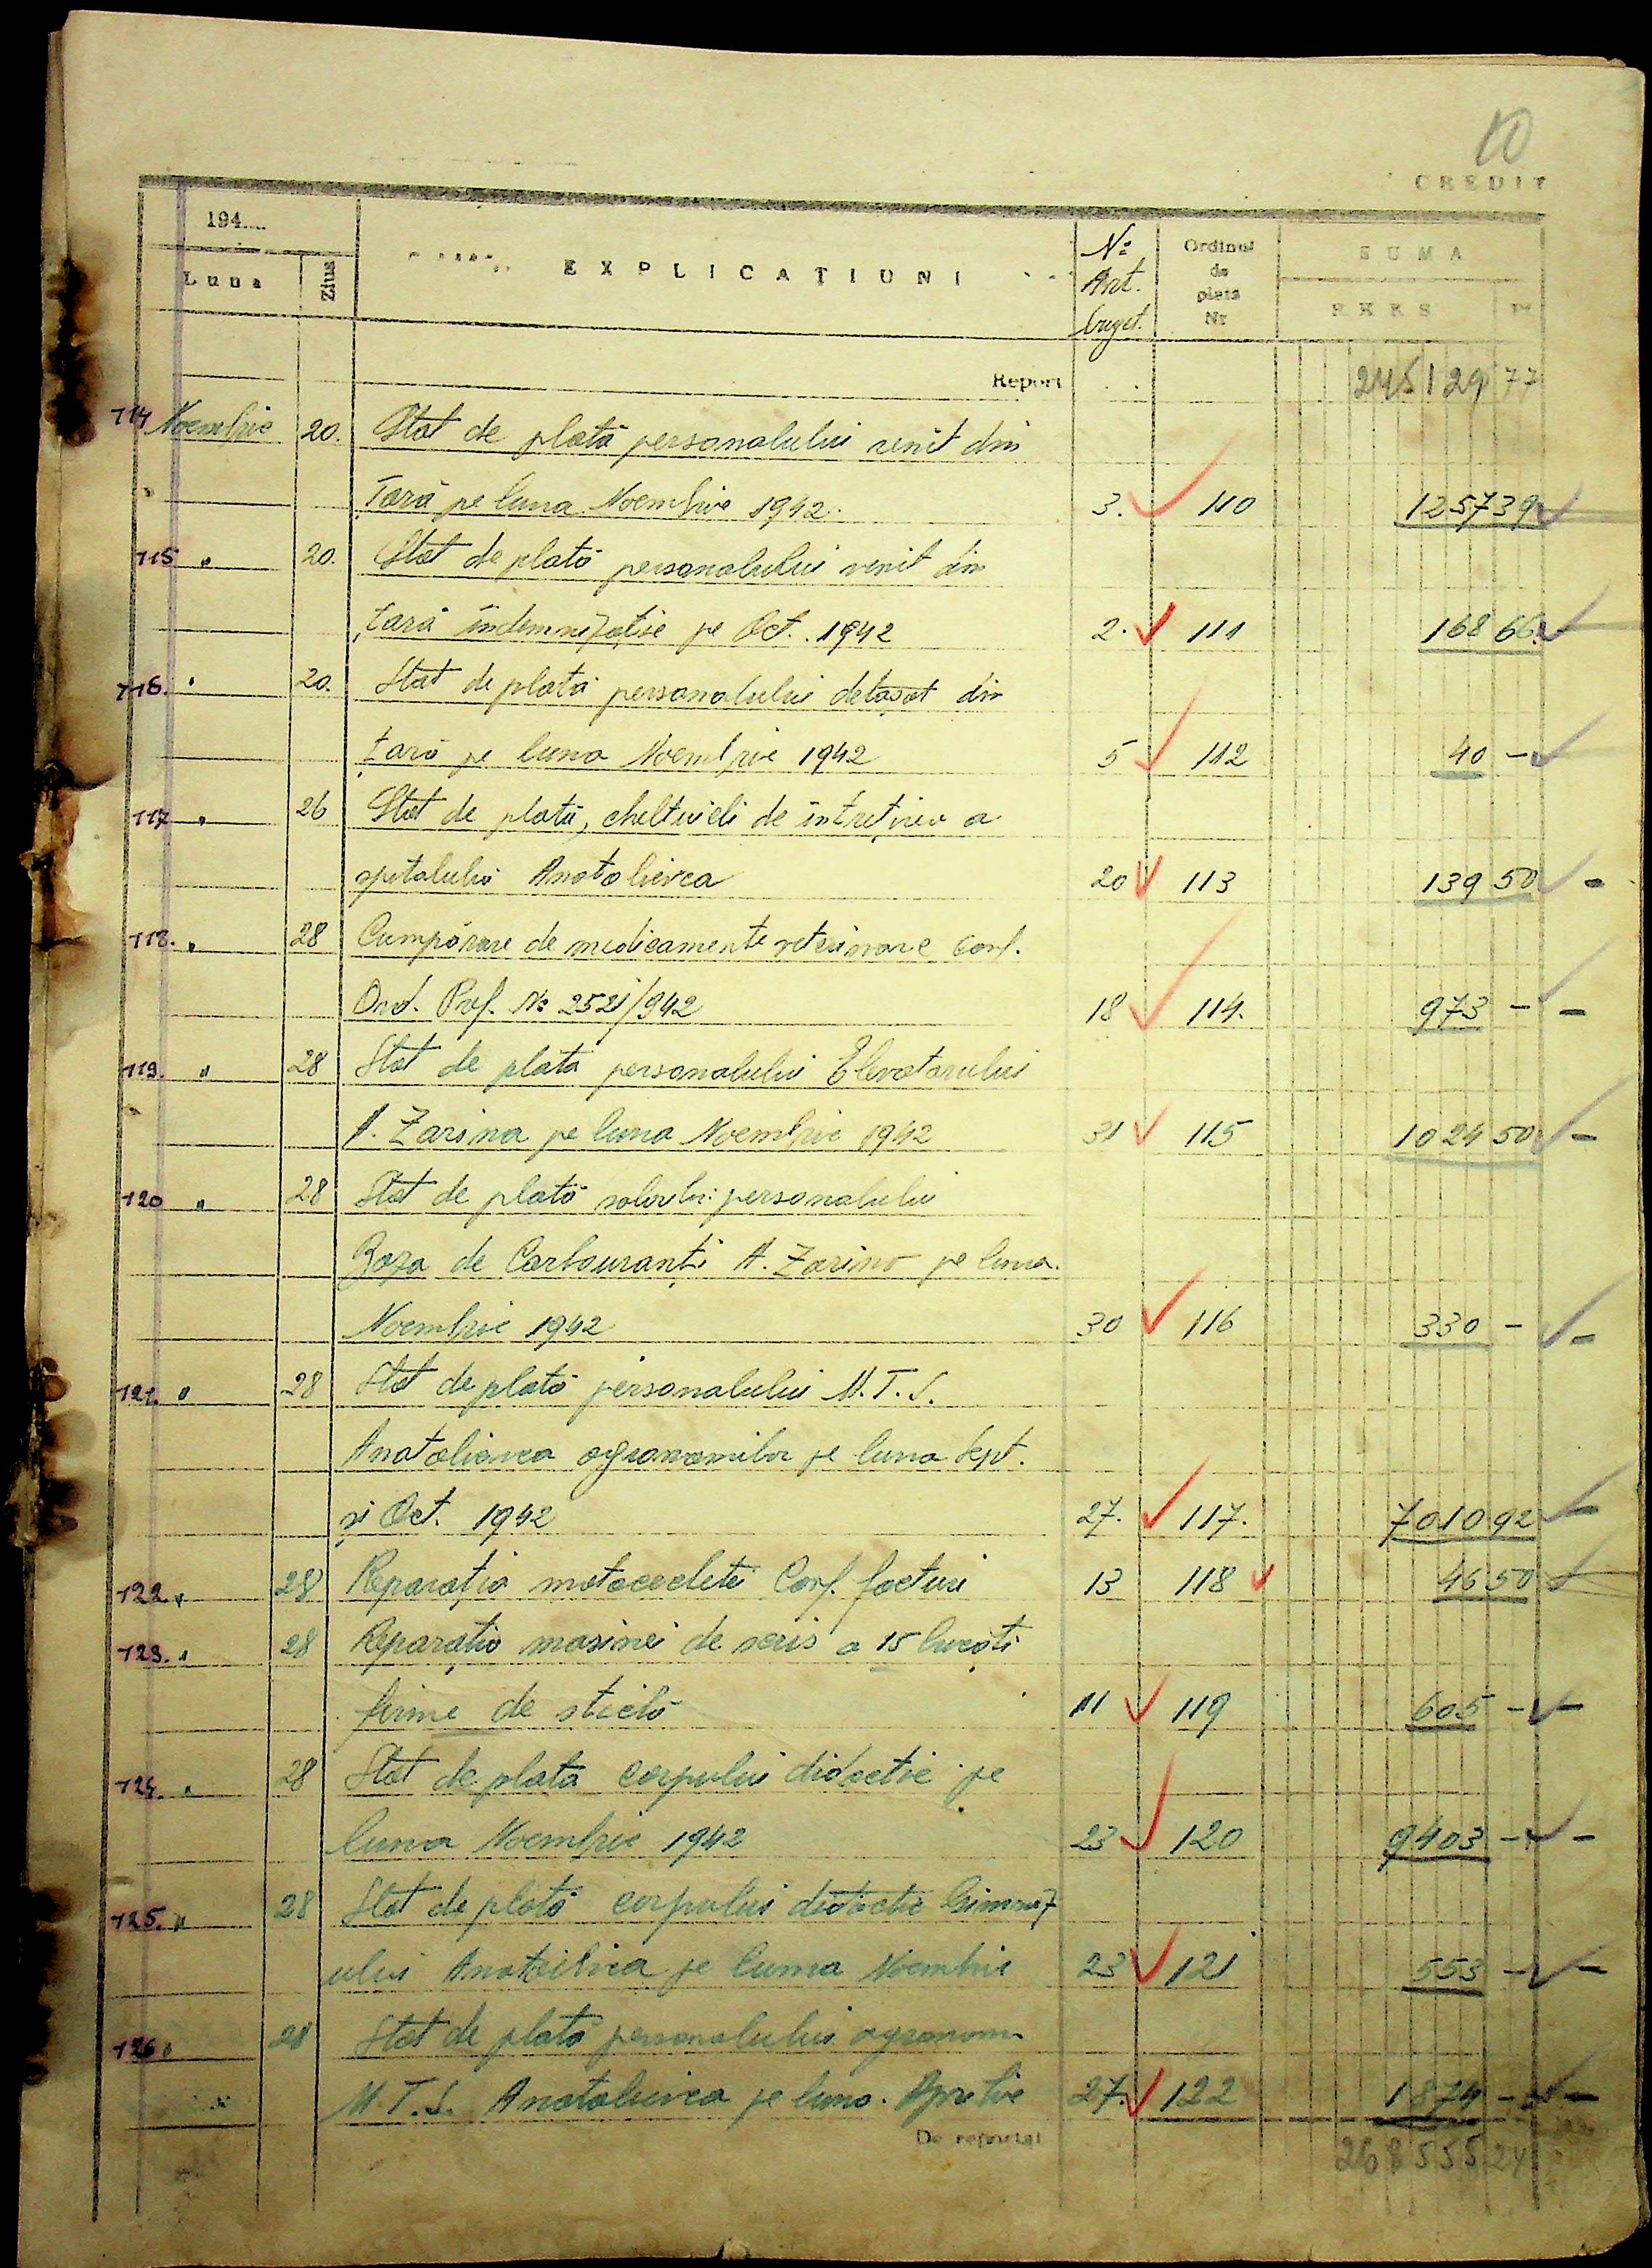 10
CREDIT
194....
Luna Ziua EXPLICAȚIUNI No Art. buget. Ordinul de plată Nr SUMA
RKKS Pf
Report 245129 77
114 Noembrie 20. Stat de plată personalului venit din
Țară pe luna Noembrie 1942. 3. 110 1257 39
115 " 20. Stat de plată personalului venit din
țară indemnizație pe Oct. 1942 2. 111 168 66
116. " 20. Stat de plată personalului detașat din
țară pe luna Noembrie 1942 5 112 40 -
117 " 26 Stat de plată, cheltuieli de întreținere a
spitalului Anatolievca 20 113 139 50
118. " 28 Cumpărare de medicamente veterinare conf.
Ord. Pref. No 2521/942 18 114. 973 -
119. " 28 Stat de plata personalului Elevatorului
A. Zarina pe luna Noembrie 1942 31 115 1024 50
120 " 28 Stat de plată personalului
Baza de Carburanți A. Zarina pe luna
Noembrie 1942 30 116 330 -
121. " 28 Stat de plată personalului M.T.S.
Anatolievca agronomilor pe luna Sept.
și Oct. 1942 27. 117. 7010 92
122 " 28 Reparația motocicletei Conf. facturi 13 118 46 50
123. " 28 Reparația masinei de scris a 15 bucăți
firme de sticlă 11 119 605 -
124. " 28 Stat de plata corpului didactic pe
luna Noembrie 1942 23 120 9403 -
125. " 28 Stat de plată corpului didactic Gimnaz
ului pe luma Noembrie 23 121 553 -
126 " 28 Stat de plată personalului agronom
M.T.S. Anatolievca pe luna. Aprilie 27. 122 1874 -
De reportat 268555 24